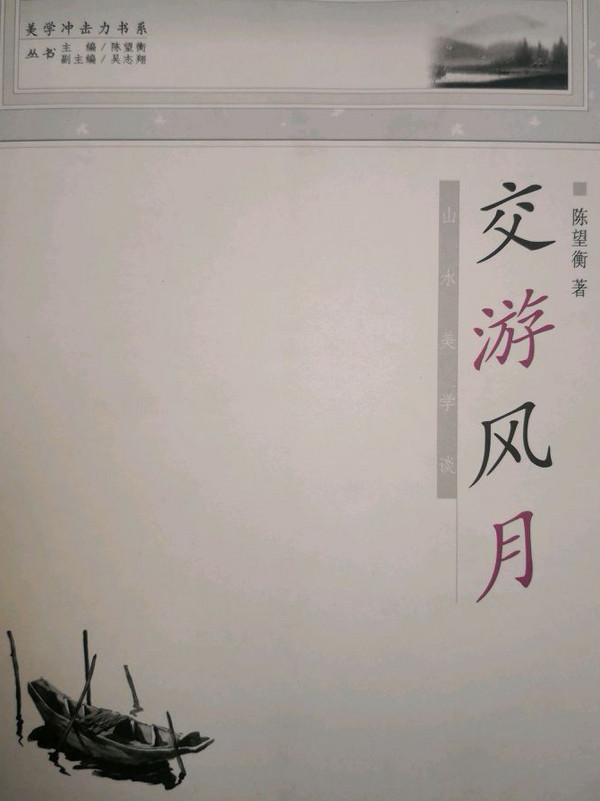 美学冲击力书系
丛书 主编/陈望衡
副主编/吴志翔
陈望衡 著
交游风月
山水美学谈